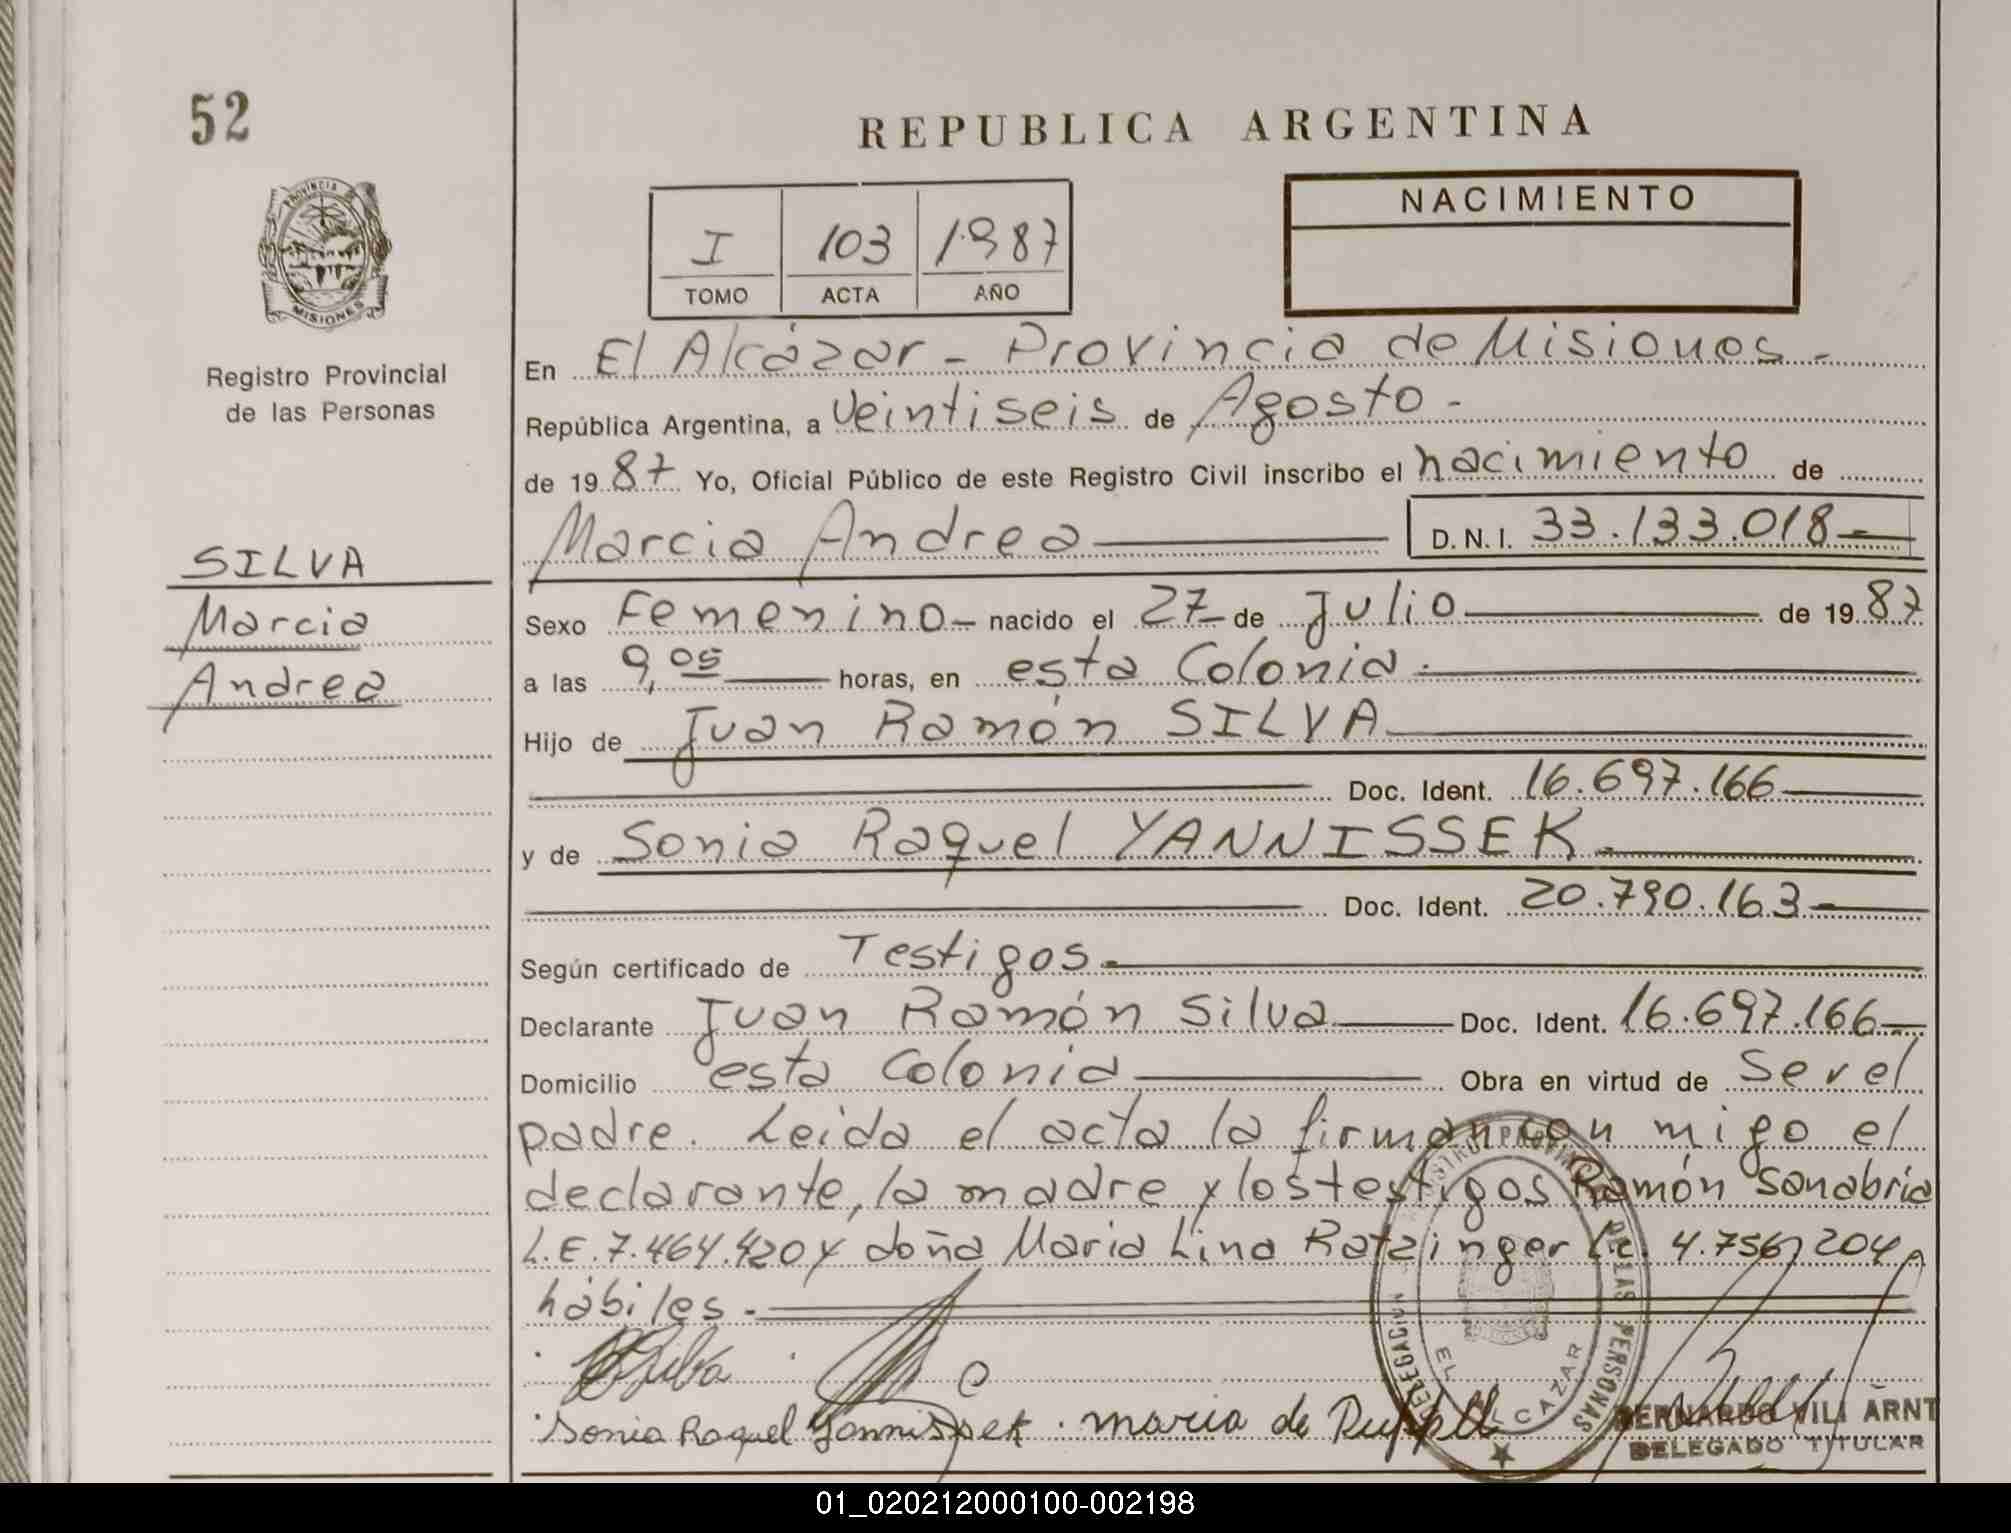 52
REPUBLICA ARGENTINA
PROVINCIA
MISIONES
I 103 1.987
TOMO ACTA AÑO
NACIMIENTO
Registro Provincial
de las Personas
En El Alcázar - Provincia de Misiones -
República Argentina, a Veintiseis de Agosto -
de 1987 Yo, Oficial Público de este Registro Civil inscribo el nacimiento de
Marcia Andrea D.N.I. 33.133.018-
SILVA
Marcia
Andrea
Sexo Femenino - nacido el 27 de Julio de 1987
a las 9,05 horas, en esta Colonia.
Hijo de Juan Ramón SILVA
Doc. Ident. 16.697.166
y de Sonia Raquel YANNISSEK.
Doc. Ident. 20.790.163
Según certificado de Testigos.
Declarante Juan Ramón Silva Doc. Ident. 16.697.166
Domicilio esta Colonia Obra en virtud de Ser el
padre. Leida el acta la firman con migo el
declarante, la madre y los testigos Ramón Sanabria
L.E. 7.464.420 y doña Maria Lina Ratzinger L.c. 4.756,204,
hábiles.-
Silva
Sonia Raquel Yannissek . maria de
DELEGACION EL ALCAZAR
REGISTRO PROVINCIAL DE LAS PERSONAS
BERNARDO VILI ARNT
DELEGADO TITULAR
01_020212000100-002198